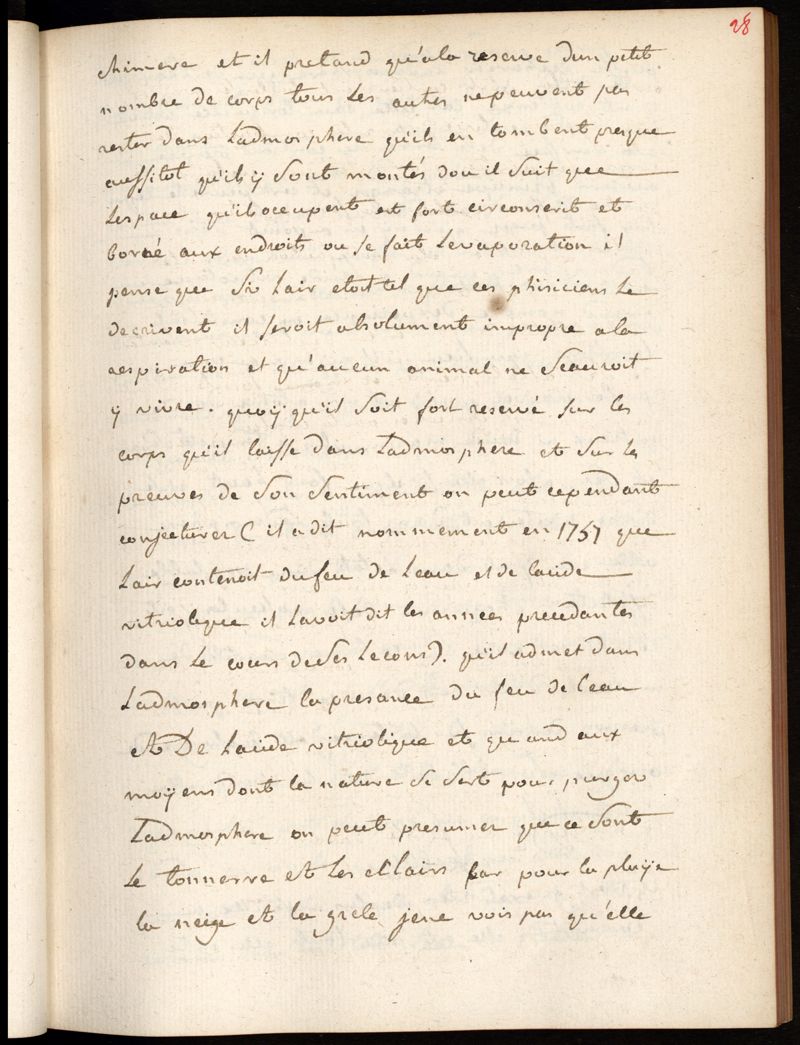 28
chimere et il pretand qu'ala reserve dun petit
nombre de corps tous les autres ne peuvent pas
rester dans Ladmosphere qu'ils en tombent presque
aussitot qu'ils ÿ sont montés dou il suit que
Lespace qu'ils occupent est fort circonscrit et
borné aux endroits ou se fait Levaporation il
pense que si Lair etoit tel que ces phisiciens Le
decrivent il seroit absolument impropre ala
respiration et qu'aucun animal ne scauroit
ÿ vivre. quoÿ qu'il soit fort reservé sur les
corps qu'il laisse dans Ladmosphere et sur les
preuves de son sentiment on peut cependant
conjecturer ( il a dit nommement en 1757 que
Lair contenoit du feu de Leau et de lacide
vitriolique il Lavoit dit les années precedantes
dans Le cours de ses Lecons). qu'il admet dans
Ladmosphere la presance du feu de leau
et De Lacide vitriolique et quand aux
moÿens dont la nature se sert pour purger
Ladmosphere on peut presumer que ce sont
Le tonnerre et Les eclairs car pour la pluÿe
la neige et la grele je ne vois pas qu'elle